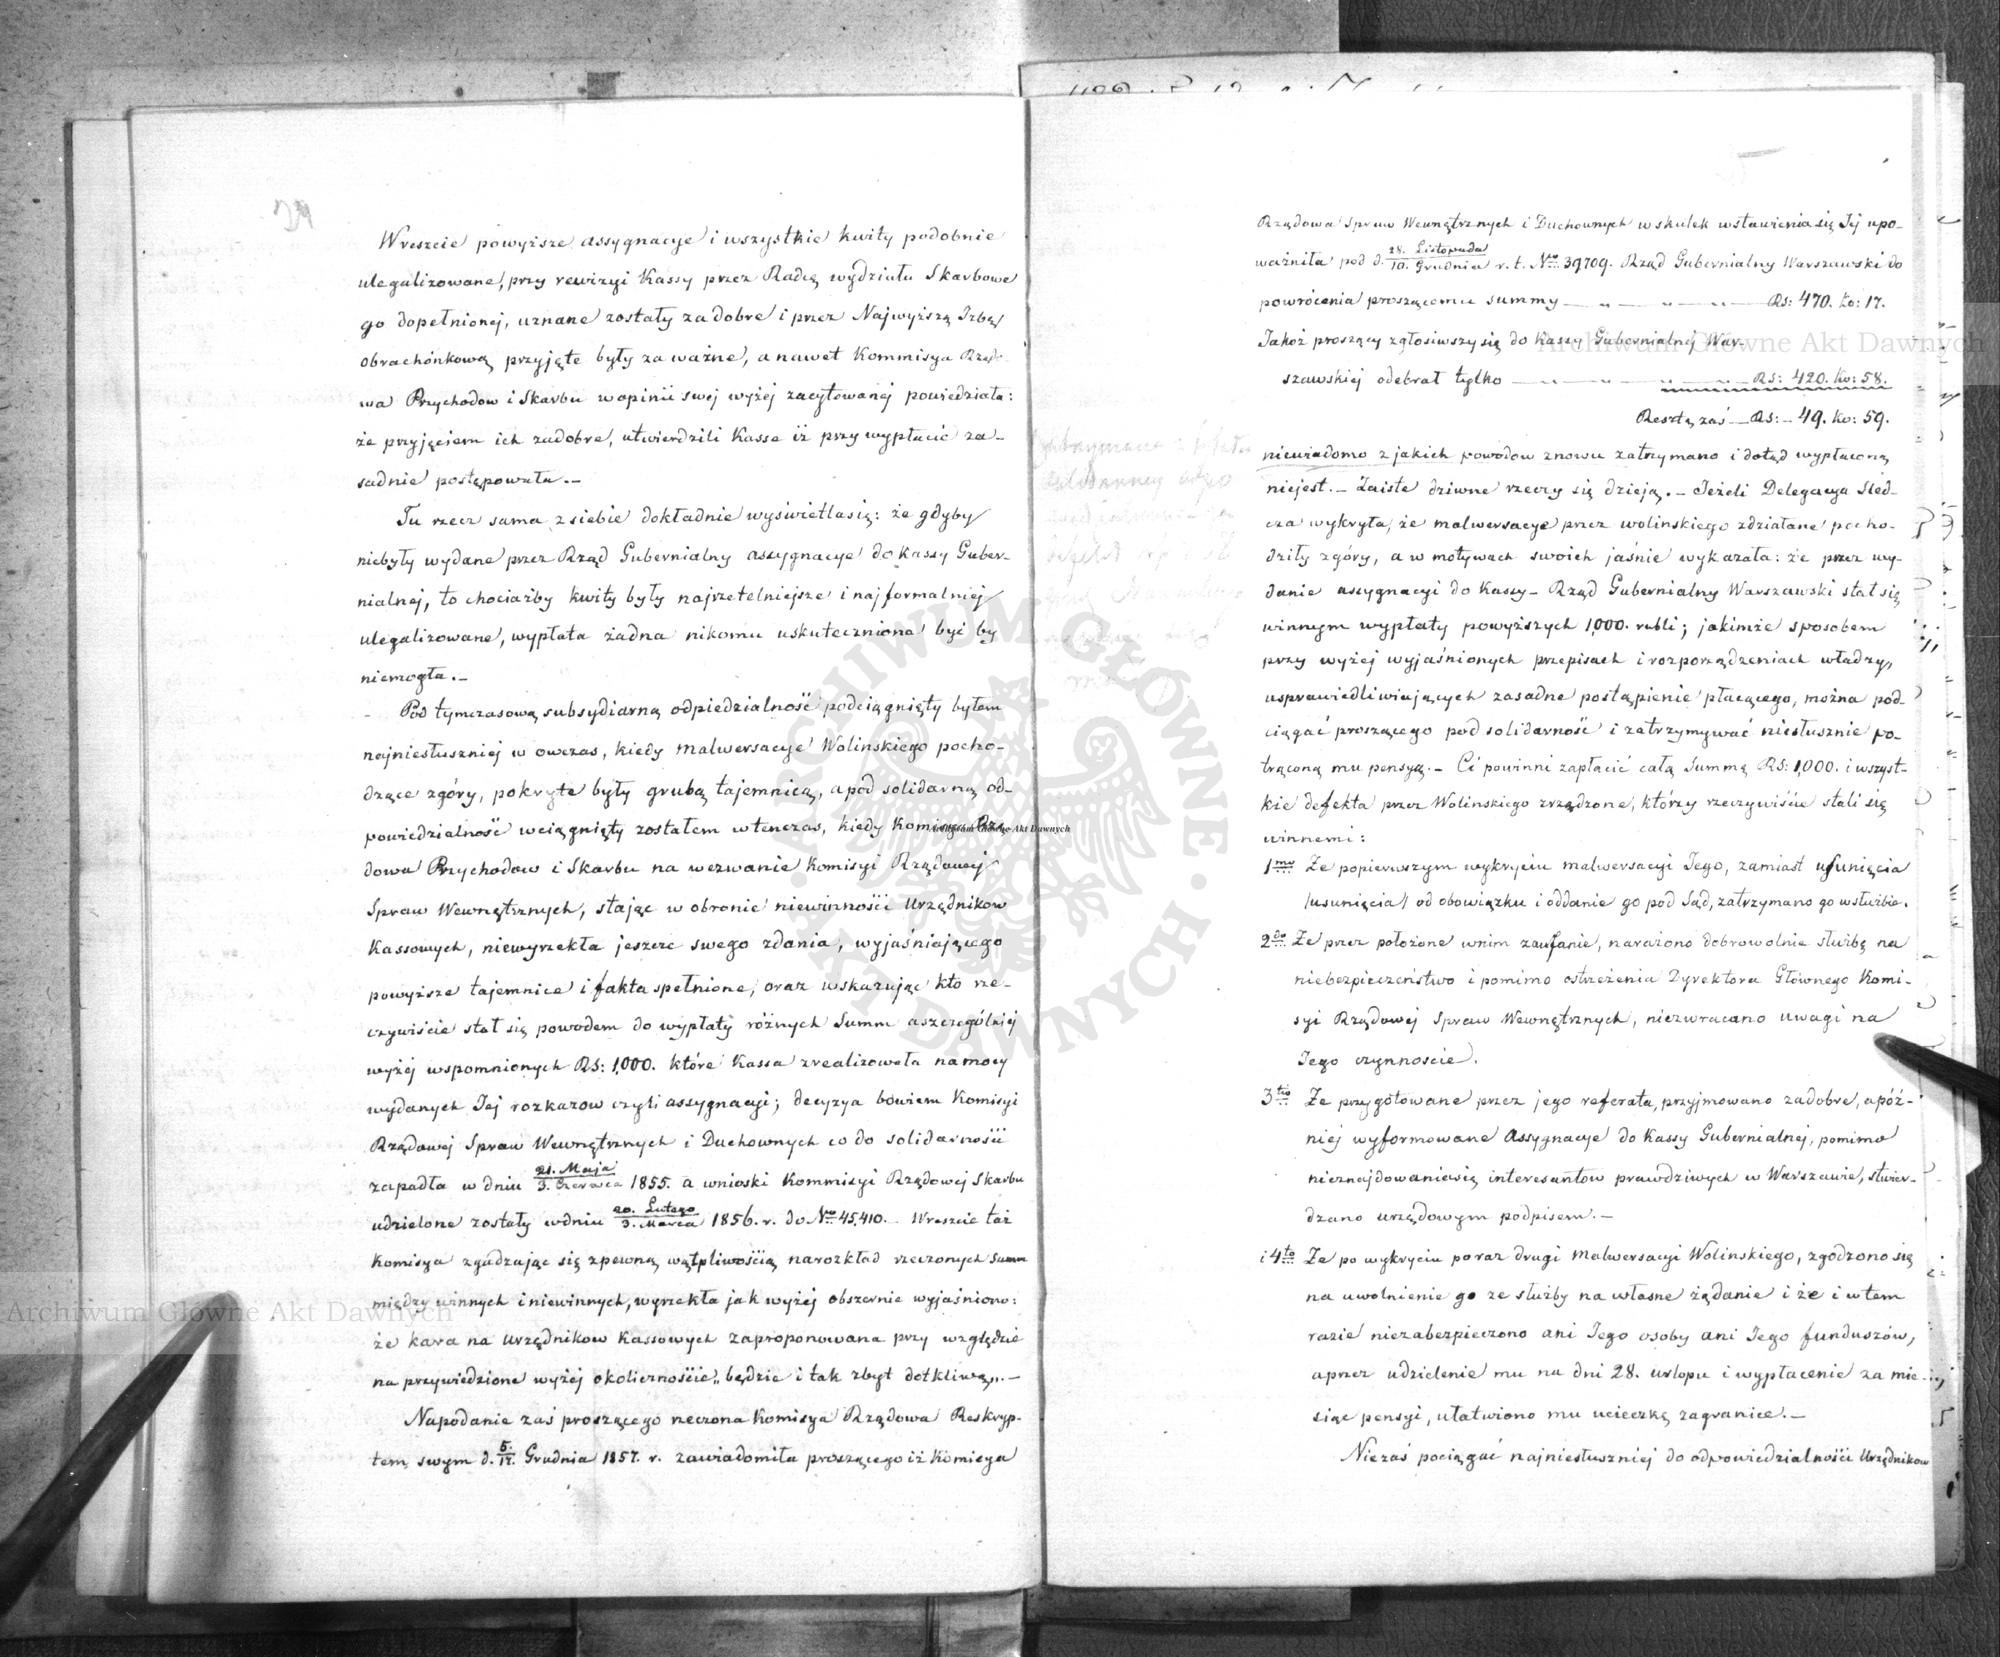 Wreszcie powyższe assygnacye i wszystkie kwity podobnie
ulegalizowane, przy rewizyi Kassy przez Radcę wydziału Skarbowe
go dopełnionej, uznane zostały za dobre i przez Najwyższą Izbę
obrachónkową przyjęte były za ważne, a nawet Kommisya Rządo-
wa Przychodow i Skarbu w opinii swej wyżej zacytowanej powiedziała:
że przyjęciem ich zadobre, utwierdzili Kasse iż przy wypłacie za-
sadnie postępowała.-
Tu rzecz sama z siebie dokładnie wyswietla się: że gdyby
niebyły wydane przez Rząd Gubernialny assygnacye do kassy Guber-
nialnej, to chociażby kwity były najrzetelniejsze i najformalniej
ulegalizowane, wypłata żadna nikomu uskuteczniona być by
niemogła.-
Pod tymczasową subsydiarną odpiedzialność podciągnięty byłem
najniesłuszniej w owczas, kiedy malwersacye Wolinskiego pocho-
dzące zgóry, pokryte były grubą tajemnicą, a pod solidarną od-
powiedzialność wciągnięty zostałem wtenczas, kiedy Komisya Rzą-
dowa Przychodow i Skarbu na wezwanie Komisyi Rządowej
Spraw Wewnętrznych, stając w obronie niewinności Urzędnikow
Kassowych, niewyrzekła jeszcze swego zdania, wyjaśniającego
powyższe tajemnice i fakta spełnione, oraz wskazując kto rze-
czywiście stał się powodem do wypłaty różnych Summ a szczególniej
wyżej wspomnionych RS: 1,000. które Kassa zrealizowała na mocy
wydanych Jej rozkazow czyli assygnacyi; decyzya bowiem Komisyi
Rządowej Spraw Wewnętrznych i Duchownych co do solidarności
zapadła w dniu 21. Maja/3. Czerwca 1855. a wnioski Kommisyi Rządowej Skarbu
udzielone zostały w dniu 20. Lutego/3. Marca 1856. r. do No 45,410.- Wreszcie taż
Komisya zgadzając się zpewną wątpliwością na rozkład rzeczonych Summ
między winnych i niewinnych, wyrzekła jak wyżej obszernie wyjaśniono:
że kara na Urzędnikow Kassowych zaproponowana przy względzie
na przywiedzione wyżej okoliczności „będzie i tak zbyt dotkliwą„.-
Napodanie zaś proszącego rzeczona Komisya Rządowa Reskryp-
tem swym d. 5./17. Grudnia 1857. r. zawiadomiła proszącego iż Komisya
Rządowa Spraw Wewnętrznych i Duchownych w skutek wstawienia się Jej upo-
ważniła pod d. 28. Listopada/10. Grudnia r. t. No 39709. Rząd Gubernialny Warszawski do
powrócenia proszącemu summy — „ — „ — „ — RS: 470. ko: 17.
Jakoż proszący zgłosiwszy się do Kassy Gubernialnej War-
szawskiej odebrał tylko — „ — „ — „ — RS: 420. Ko: 58.
Resztę zaś — RS: - 49. ko: 59.
niewiadomo z jakich powodow znowu zatrzymano i dotąd wypłaconą
niejest.- Zaiste dziwne rzeczy się dzieją.- Jeżeli Delegacya Sled-
cza wykryła, że malwersacye przez wolinskiego zdziałane pocho-
dziły zgóry, a w motywach swoich jaśnie wykazała: że przez wy-
danie assygnacyi do Kassy - Rząd Gubernialny Warszawski stał się
winnym wypłaty powyższych 1,000. rubli; jakimże sposobem
przy wyżej wyjaśnionych przepisach i rozporządzeniach władzy,
usprawiedliwiających zasadne postąpienie płacącego, można pod-
ciągać proszącego pod solidarność i zatrzymywać niesłusznie po-
trąconą mu pensyą.- Ci powinni zapłacić całą Summę RS: 1,000. i wszyst-
kie defekta przez Wolinskiego zrządzone, którzy rzeczywiście stali się
winnemi:
1mo Że popierwszym wykryciu malwersacyi Jego, zamiast usunięcia
/usunięcia/ od obowiązku i oddanie go pod Sąd, zatrzymano go w służbie.
2do Że przez położone wnim zaufanie, narażono dobrowolnie służbę na
niebezpieczeństwo i pomimo ostrzeżenia Dyrektora Głównego Komi-
syi Rządowej Spraw Wewnętrznych, niezwracano uwagi na
Jego czynnoscie.
3tio Że przygotowane przez jego referata, przyjmowano zadobre, a póź-
niej wyformowane Assygnacye do Kassy Gubernialnej, pomimo
nieznajdowaniasię interesantow prawdziwych w Warszawie, stwier-
dzano urzędowym podpisem.-
i 4to Że po wykryciu poraz drugi malwersacyi Wolinskiego, zgodzono się
na uwolnienie go ze służby na własne żądanie i że i w tem
razie niezabezpieczono ani Jego osoby ani Jego funduszów,
a przez udzielenie mu na dni 28. urlopu i wypłacenie za mie-
siąc pensyi, ułatwiono mu ucieczkę zagranice.-
Niezaś pociągać najniesłuszniej do odpowiedzialności Urzędnikow
Archiwum Główne Akt Dawnych
Archiwum Główne Akt Dawnych
Archiwum Główne Akt Dawnych
ARCHIWUM GŁÓWNE · AKT DAWNYCH ·